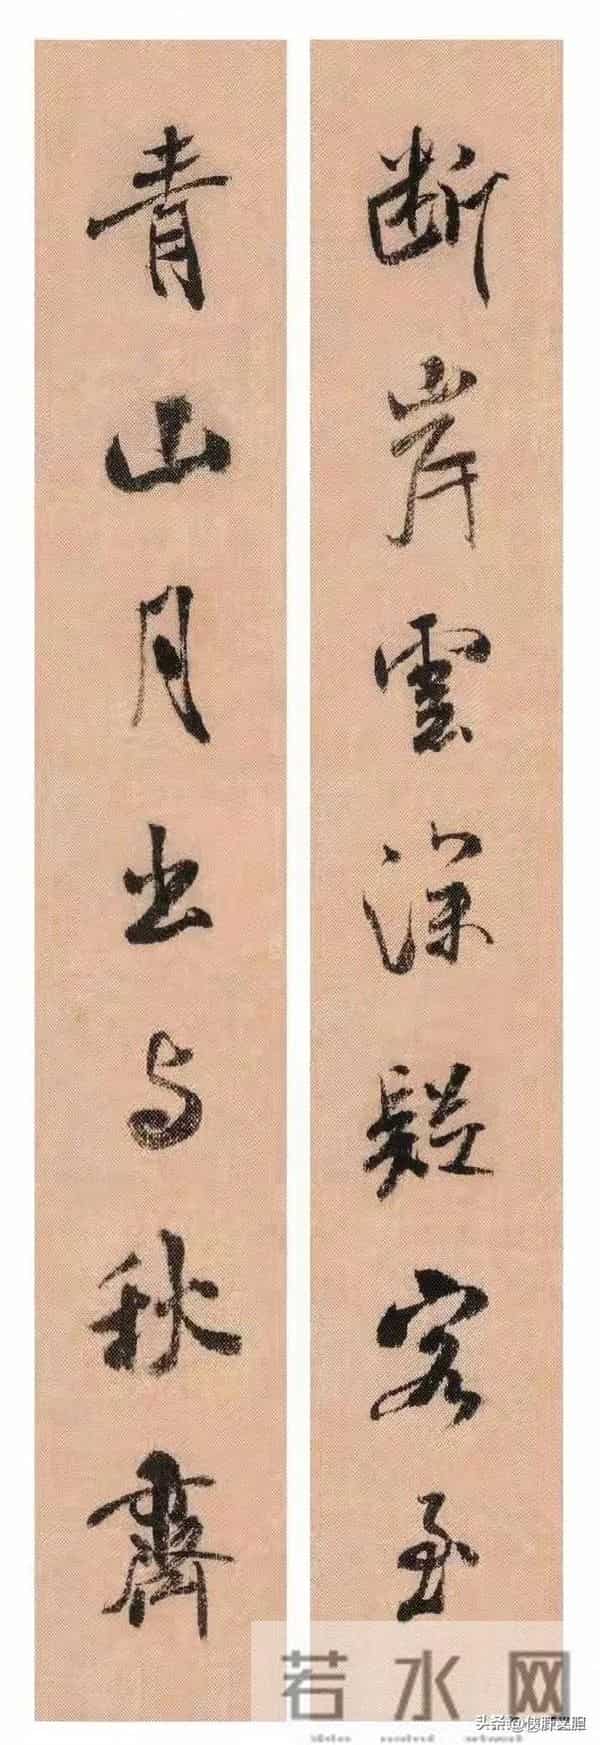 断岸雲深疑客至
青山月出与秋齊
若水网
头条@